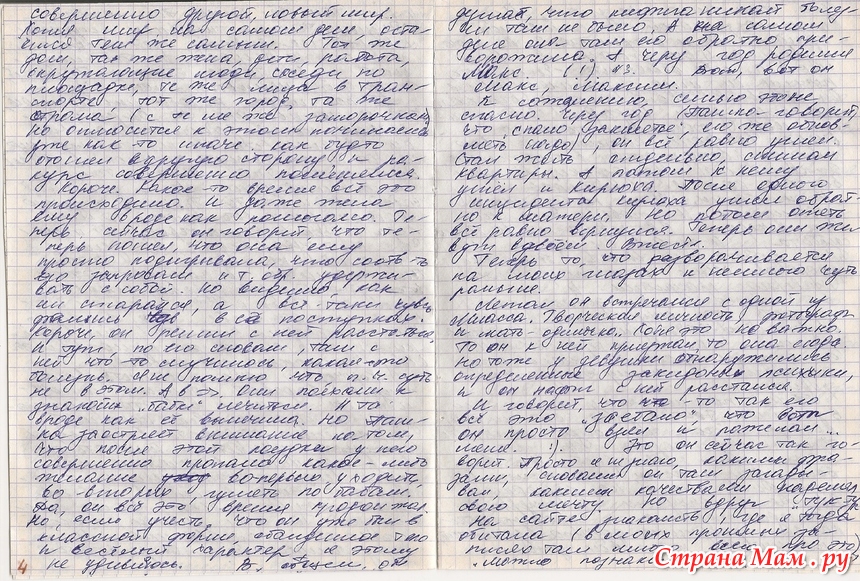 совершенно другой, новый мир.
Хотя мир на самом деле оста-
вался тем же самым. Тот же
дом, так же жена, дети, работа,
окружающие люди, соседи по
площадке, те же лица в тран-
спорте, тот же город, та же
страна (с теми же заморочками)
Но относится к этому начинаешь
уже как-то иначе. как будто
отошел в другую сторону и ра-
курс совершенно поменялся.
Короче. Какое-то время всё это
происходило. И даже жена
ему вроде как помогала. Те-
перь сейчас он говорит что те-
перь понял, что она ему
просто подыгрывала, чтоб соот-ть
его запросам и т.обр удержи-
вать с собой. Но видимо как
ни старайся, а всё-таки
в поступках.
Короче, он решил с ней расстаться
и тут, по его словам, там с
ней что-то случилось, какая-то
болезнь. Я не помню что, п.ч. суть
не в этом. А в Они поехали к
знакомой лечиться. И та
вроде как её вылечила. Но
заостряет внимание на том,
что после этой поездки у него
совершенно пропало какое-либо
желание во-первых, уходить,
во-вторых гулять по бабам.
Да, он всё это время продолжал.
Но, если учесть, что он уже был в
классной форме, обалденное тело
и веселый характер, я этому
не удивилась. В общем, он
4
думал, что никакой болез-
ни там не было. А она на самом
деле она там его обратно при-
ворожила. А через год родился
Макс. вот он
Макс, Максим.
К сожалению, семью это не
спасло. Через год говорит,
что, спало заклятье, его же обнов-
лять надо), он всё равно ушел.
Стал жить отдельно, снимал
квартиры. А потом к нему
ушел и Кирюха. После одного
инцидента Кирюха ушел обрат-
но к матери, но потом опять
всё равно вернулся. Теперь они жи-
вут вдвоем. Вместе.
Теперь то, что разворачивается
на моих глазах и немного чуть
раньше.
Летом он встречался с одной из
Миасса. Творческая личность, фотограф
и мать-одиночка. Хотя это не важно.
То он к ней приезжал, то она сюда.
Но тоже у девушки обнаружились
определенные закидоны психики,
и он нафиг с ней расстался.
И говорит, что что-то так его
всё это "достало" что
он просто взял и пожелал...
меня. :). Это он сейчас так го-
ворит. Просто я не знаю, какими фра-
зами, словами он там загады-
вал, какими качествами наделял
свою мечту но вдруг тук-тук
на сайте знакомств, где я тогда
обитала (в моих прошлых за-
писях там много всего про это)
Можно познако
Страна Мам.ру